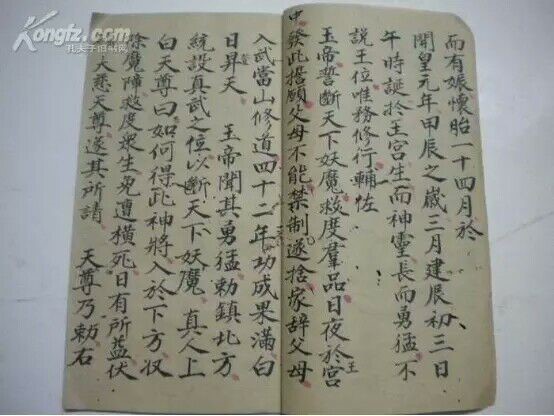 Kongfz.com
孔夫子旧书网
而有娠懷胎一十四月於
開皇元年甲辰之歲三月建辰初三日
午時誕於王宮生而神靈長而勇猛不
說王位唯務修行輔佐
玉帝誓斷天下妖魔救度羣品日夜於宮
王
中發此擔願父母不能禁制遂捨家辞父母
入武當山修道四十二年功成果滿白
日昇天 玉帝聞其勇猛勅鎮北方
統設真武之位以断天下妖魔 真人上
白天尊曰如何得此神將入於下方収
除魔障救度衆生免遭橫死日有所益伏
大慈天尊遂其所請 天尊乃勅右